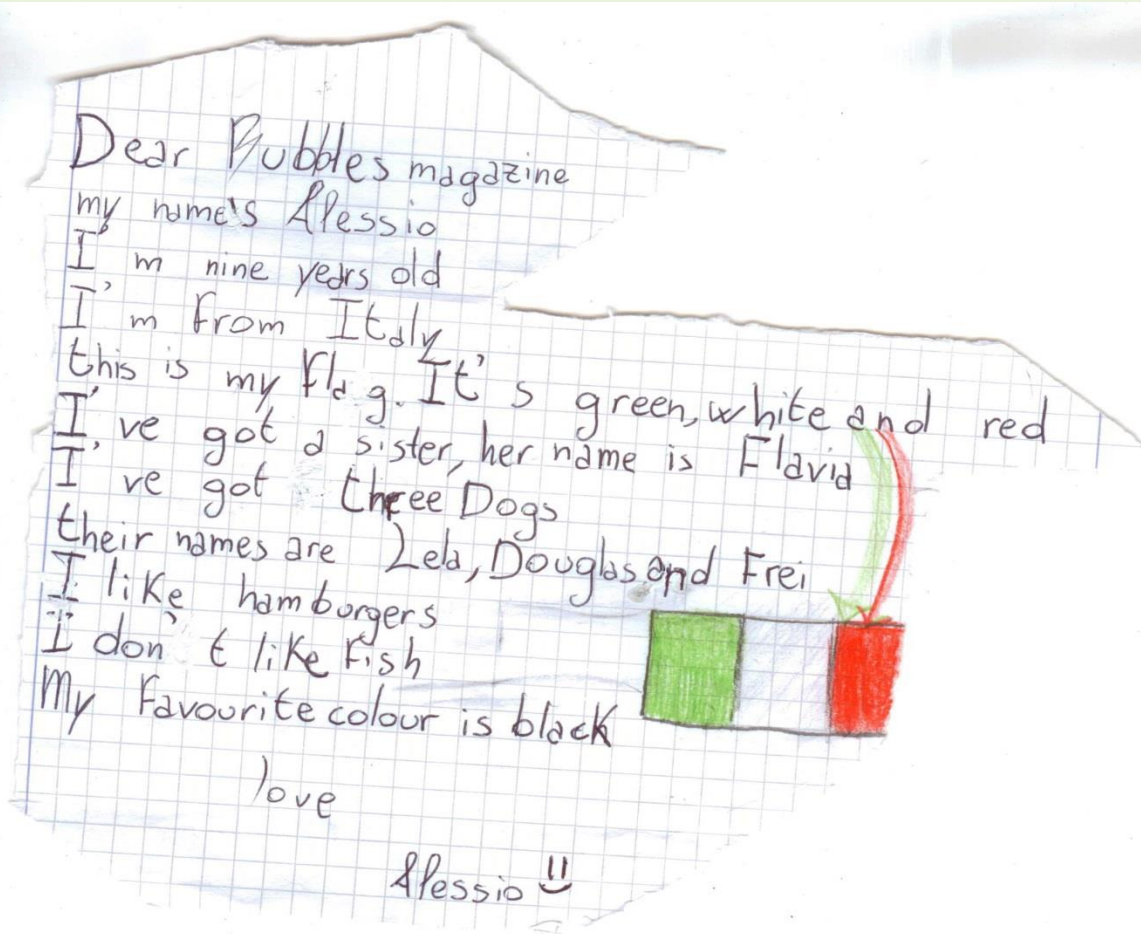 Dear Bubbles magazine
my name's Alessio
I'm nine years old
I'm from Italy
this is my flag. It's green, white and red
I've got a sister, her name is Flavia
I've got three Dogs
their names are Lela, Douglas and Frei
I like hamburgers
I don't like fish
My favourite colour is black
love
Alessio